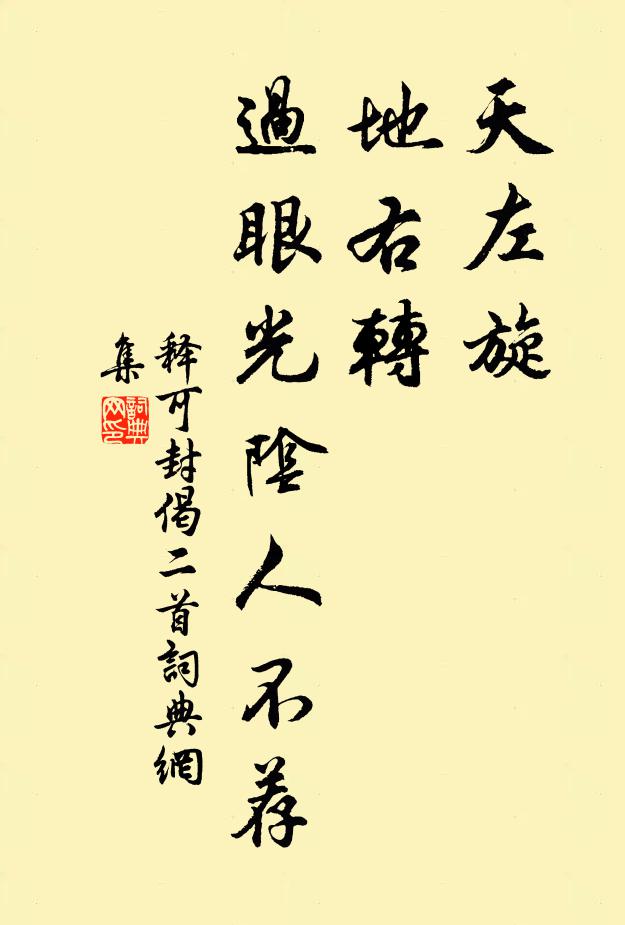 天左旋
地右轉
過眼光陰人不荐
释可封偈二首詞典網
集
詞典
网印